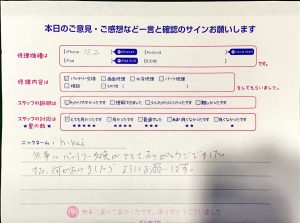 本日のご意見・ご感想など一言と確認のサインお願いします
修理機種は
iPhone
Android
iPad
です。
修理内容は
バッテリー交換
画面修理
水没修理
パーツ修理
相談
その他
をしました。
スタッフの説明は
わかりやすかったです
理解できました
少しわかりにくかったです
難しかったです
スタッフの対応は
とても良かったです
良かったです
普通でした
少し良くなかったです
良くなかったです
★星の数★
★★★★★
★★★★
★★★
★★
★
ニックネーム: h-kai
無事にバッテリー交換ができて、ありがとうございました。
また、何かありましたら よろしくお願いします。
無事に直って良かったです。ありがとうございました